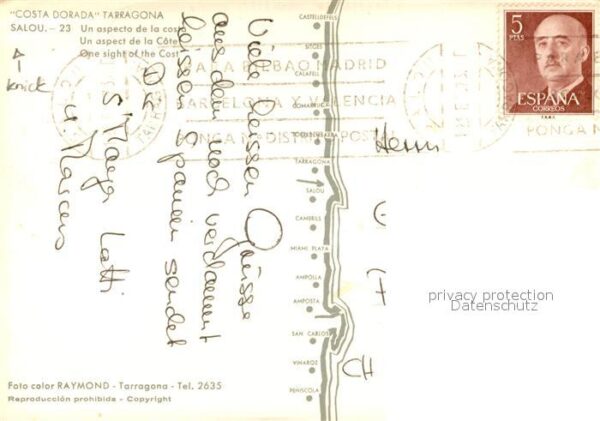 "COSTA DORADA" TARRAGONA
SALOU. - 23 Un aspecto de la costa
Un aspect de la Côte
One sight of the Cost
knick
5
PTAS
ESPAÑA
CORREOS
BILBAO MADRID
BARCELONA Y VALENCIA
PONGA DISTRITO POSTAL
PONGA
CASTELLDEFELS
SITGES
CALAFELL
COMARRUGA
TORREDEMBARRA
TARRAGONA
SALOU
CAMBRILS
MIAMI PLAYA
AMPOLLA
AMPOSTA
SAN CARLOS
VINAROZ
PEÑISCOLA
Viele heissen Grüsse
aus dem noch verdammt
heissen Spanien sendet
Dir
s'Maya Lotti
u Marcus
Herrn
CH
privacy protection
Datenschutz
Foto color RAYMOND - Tarragona - Tel. 2635
Reproducción prohibida - Copyright